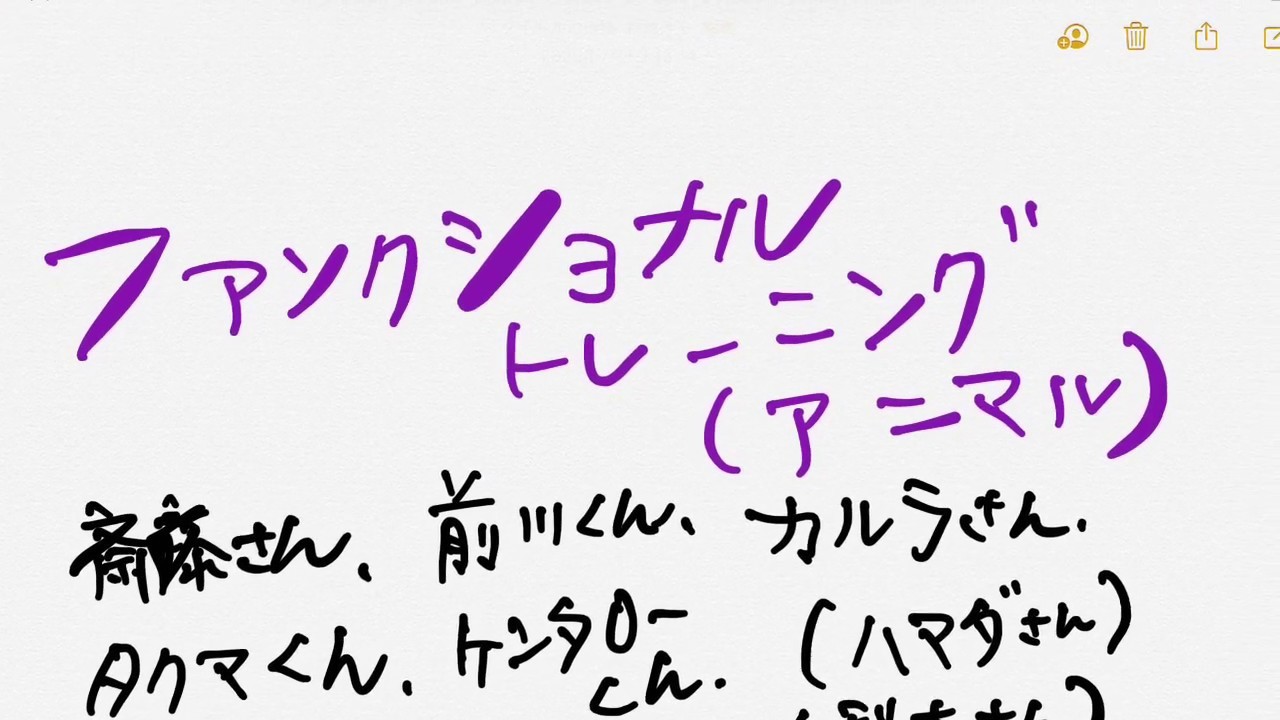 ファンクショナル
トレーニング
(アニマル)
斎藤さん、前川くん、カルラさん.
タクマくん.ケンタローくん.(ハマダさん)